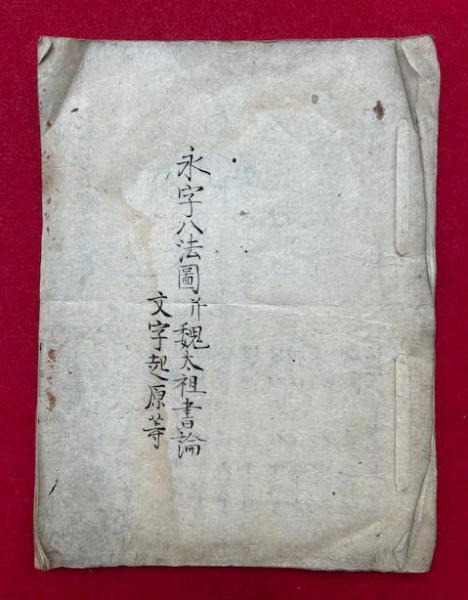 永字八法圖并魏太祖書論
文字起原等